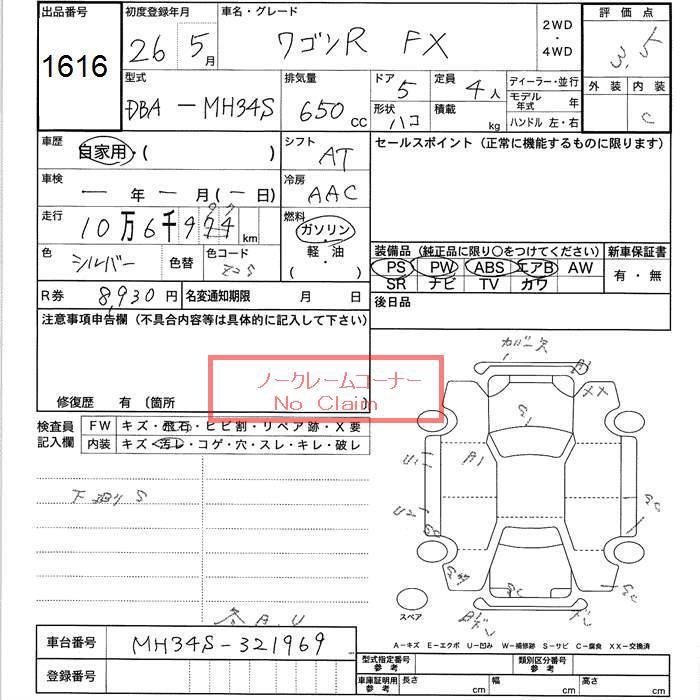 出品番号
1616
初度登録年月
26 5月
車名・グレード
ワゴンR FX
2WD
・
4WD
評価点
3.5
型式
DBA-MH34S
排気量
650 cc
ドア
5
定員
4人
形状
ハコ
積載
kg
ディーラー・並行
モデル年式 年
ハンドル 左・右
外装 内装
C
車歴
自家用・( )
シフト
AT
セールスポイント（正常に機能するものに限ります）
車検
— 年 — 月(— 日)
冷房
AAC
走行
10万6千974 km
燃料
ガソリン
軽・油
( )
色
シルバー
色替
色コード
装備品（純正品に限り○をつけてください）
新車保証書
PS PW ABS エアB AW
SR ナビ TV カワ
有・無
R券 8,930円
名変通知期限 月 日
後日品
注意事項申告欄（不具合内容等は具体的に記入して下さい）
ノークレームコーナー
No Claim
修復歴 有 〔箇所
検査員記入欄
FW キズ・飛石・ヒビ割・リペア跡・X要
内装 キズ・汚レ・コゲ・穴・スレ・キレ・破レ
カバー欠
A1
XX
S
U1
A1
U2
SC
SC
下廻り S
各 A.U
スペア
A－キズ E－エクボ U－凹み W－補修跡 S－サビ C－腐食 XX－交換済
車台番号
MH34S-321969
登録番号
型式指定番号 参考
類別区分番号 参考
車庫証明用 参考
長さ cm
幅 cm
高さ cm